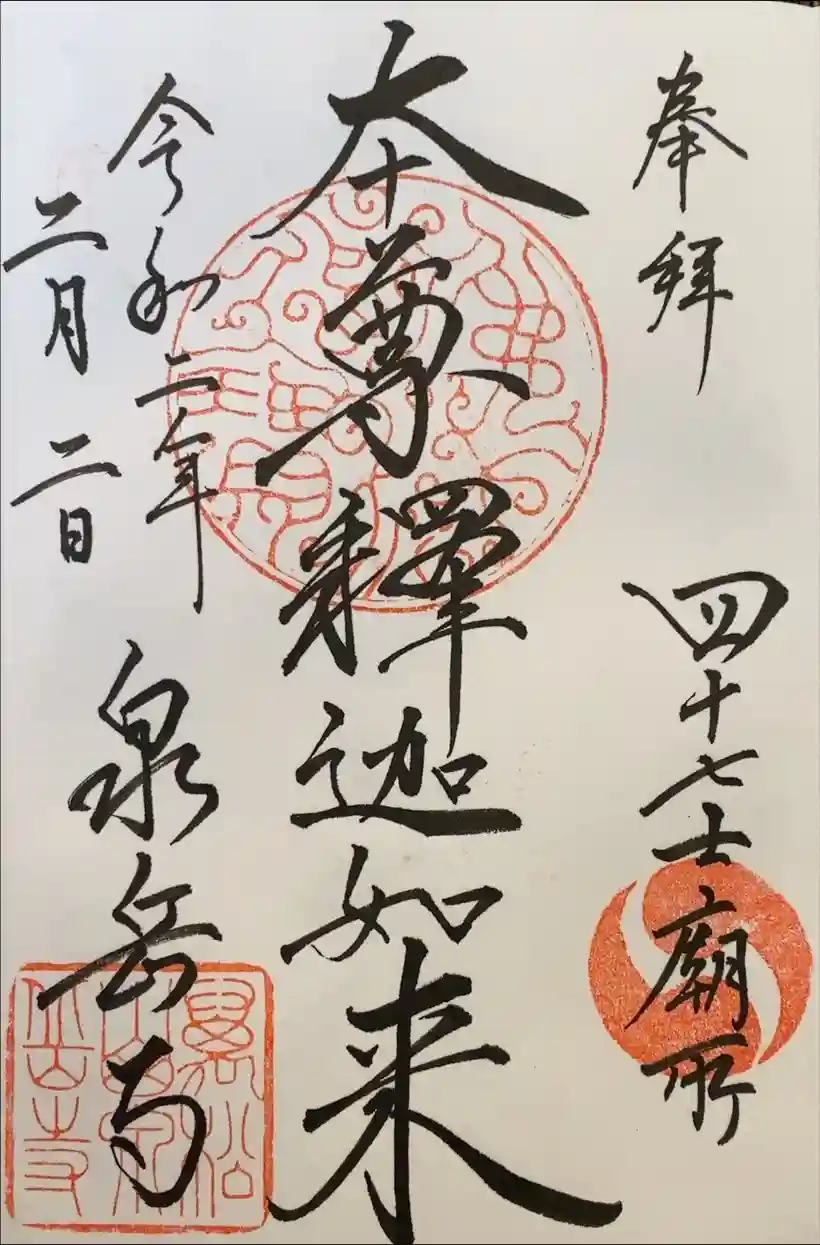 奉拝
四十七士廟所
本尊釋迦如来
令和二年
二月二日
泉岳寺